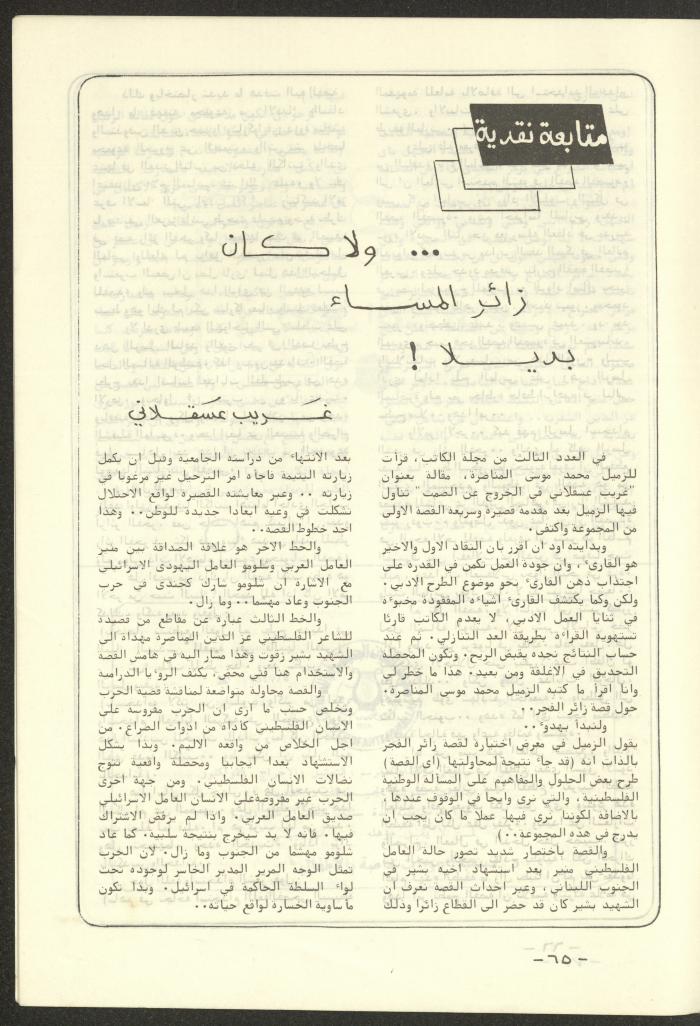 متابعة نقدية
... ولا كان
زائر المساء
بديلا !
غريب عسقلاني
في العدد الثالث من مجلة الكاتب، قرأت
للزميل محمد موسى المناصرة، مقالة بعنوان
"غريب عسقلاني في الخروج عن الصمت" تناول
فيها الزميل بعد مقدمة قصيرة وسريعة القصة الاولى
من المجموعة واكتفى.
وبدايته اود ان اقرر بان النقاد الاول والاخير
هو القارىء ، وان جودة العمل تكمن في القدرة على
اجتذاب ذهن القارىء نحو موضوع الطرح الادبي.
ولكن وكما يكتشف القارىء اشياءه المفقودة مخبوءه
في ثنايا العمل الادبي، لا يعدم الكاتب قارئا
تستهويه القراءه بطريقة العد التنازلي. ثم عند
حساب النتائج نجده يقبض الريح. وتكون المحصلة
التحديق في الاغلفة ومن بعيد. هذا ما خطر لي
وانا اقرأ ما كتبه الزميل محمد موسى المناصرة.
حول قصة زائر الفجر..
ولنبدأ بهدوء ..
يقول الزميل في معرض اختياره لقصة زائر الفجر
بالذات انه (قد جاء نتيجة لمحاولتها (اي القصة)
طرح بعض الحلول والمفاهيم على المسألة الوطنية
الفلسطينية، والتي نرى واجبا في الوقوف عندها،
بالاضافة لكوننا نرى فيها عملا ما كان يجب ان
يدرج في هذه المجموعة..)
والقصة باختصار شديد تصور حالة العامل
الفلسطيني منير بعد استشهاد اخيه بشير في
الجنوب اللبناني، وعبر احداث القصة نعرف ان
الشهيد بشير كان قد حضر الى القطاع زائرا وذلك
بعد الانتهاء من دراسته الجامعية وقبل ان يكمل
زيارته اليتيمة فاجأه امر الترحيل غير مرغوبا في
زيارته .. وعبر معايشته القصيرة لواقع الاحتلال
تشكلت في وعيه ابعادا جديدة للوطن.. وهذا
احد خطوط القصة..
والخط الاخر هو علاقة الصداقة بين منير
العامل العربي وشلومو العامل اليهودي الاسرائيلي
مع الاشارة ان شلومو شارك كجندي في حرب
الجنوب وعاد مهشما.. وما زال.
والخط الثالث عبارة عن مقاطع من قصيدة
للشاعر الفلسطيني عز الدين المناصرة مهداة الى
الشهيد بشير زقوت وهذا مشار اليه في هامش القصة
والاستخدام هنا فني محض، يكثف الروءيا الدرامية
والقصة محاولة متواضعة لمناقشة قضية الحرب
وتخلص حسب ما ارى ان الحرب مفروضة على
الانسان الفلسطيني كأداة من ادوات الصراع. من
اجل الخلاص من واقعه الاليم. وبذا يشكل
الاستشهاد بعدا ايجابيا ومحصلة واقعية تتوج
نضالات الانسان الفلسطيني. ومن جهة اخرى
الحرب غير مفروضة على الانسان العامل الاسرائيلي
صديق العامل العربي. واذا لم يرفض الاشتراك
فيها. فانه لا بد سيخرج بنتيجة سلبية. كما عاد
شلومو مهشما من الجنوب وما زال. لان الحرب
تمثل الوجه المرير المدبر الخاسر لوجوده تحت
لواء السلطة الحاكمة في اسرائيل. وبذا تكون
مأساوية الخسارة لواقع حياته..
-٦٥-